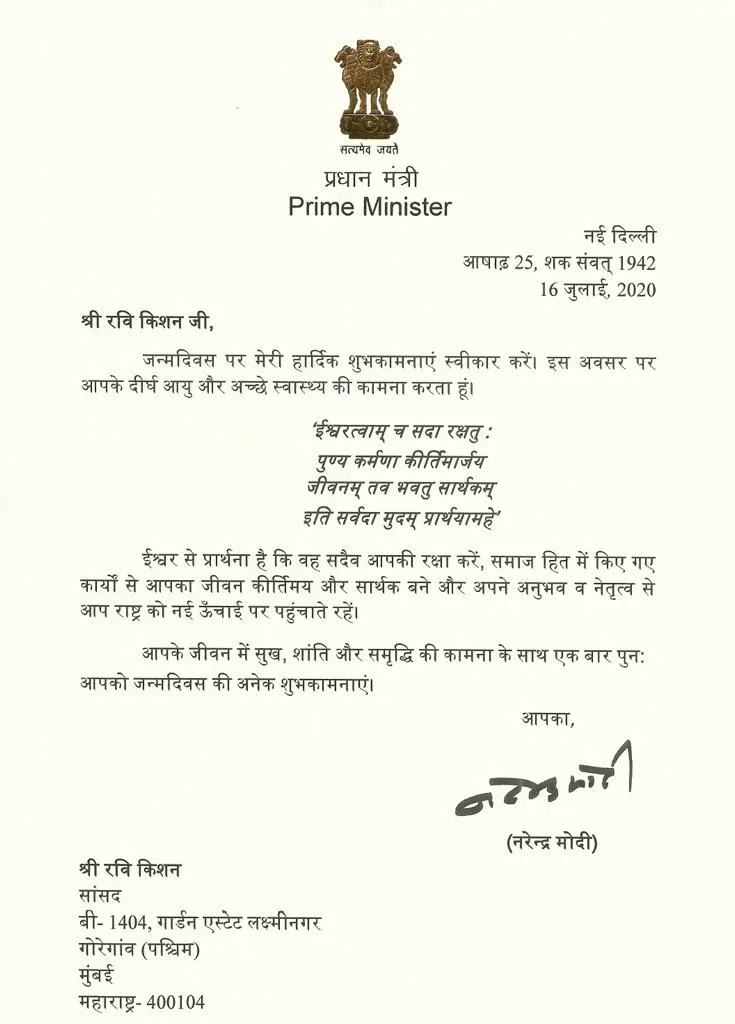 सत्यमेव जयते
प्रधान मंत्री
Prime Minister
नई दिल्ली
आषाढ़ 25, शक संवत् 1942
16 जुलाई, 2020
श्री रवि किशन जी,
जन्मदिवस पर मेरी हार्दिक शुभकामनाएं स्वीकार करें। इस अवसर पर
आपके दीर्घ आयु और अच्छे स्वास्थ्य की कामना करता हूं।
‘ईश्वरत्वाम् च सदा रक्षतु :
पुण्य कर्मणा कीर्तिमार्जय
जीवनम् तव भवतु सार्थकम्
इति सर्वदा मुदम् प्रार्थयामहे’
ईश्वर से प्रार्थना है कि वह सदैव आपकी रक्षा करें, समाज हित में किए गए
कार्यों से आपका जीवन कीर्तिमय और सार्थक बने और अपने अनुभव व नेतृत्व से
आप राष्ट्र को नई ऊँचाई पर पहुंचाते रहें।
आपके जीवन में सुख, शांति और समृद्धि की कामना के साथ एक बार पुन:
आपको जन्मदिवस की अनेक शुभकामनाएं।
आपका,
नरेन्द्र मोदी
(नरेन्द्र मोदी)
श्री रवि किशन
सांसद
बी- 1404, गार्डन एस्टेट लक्ष्मीनगर
गोरेगांव (पश्चिम)
मुंबई
महाराष्ट्र- 400104